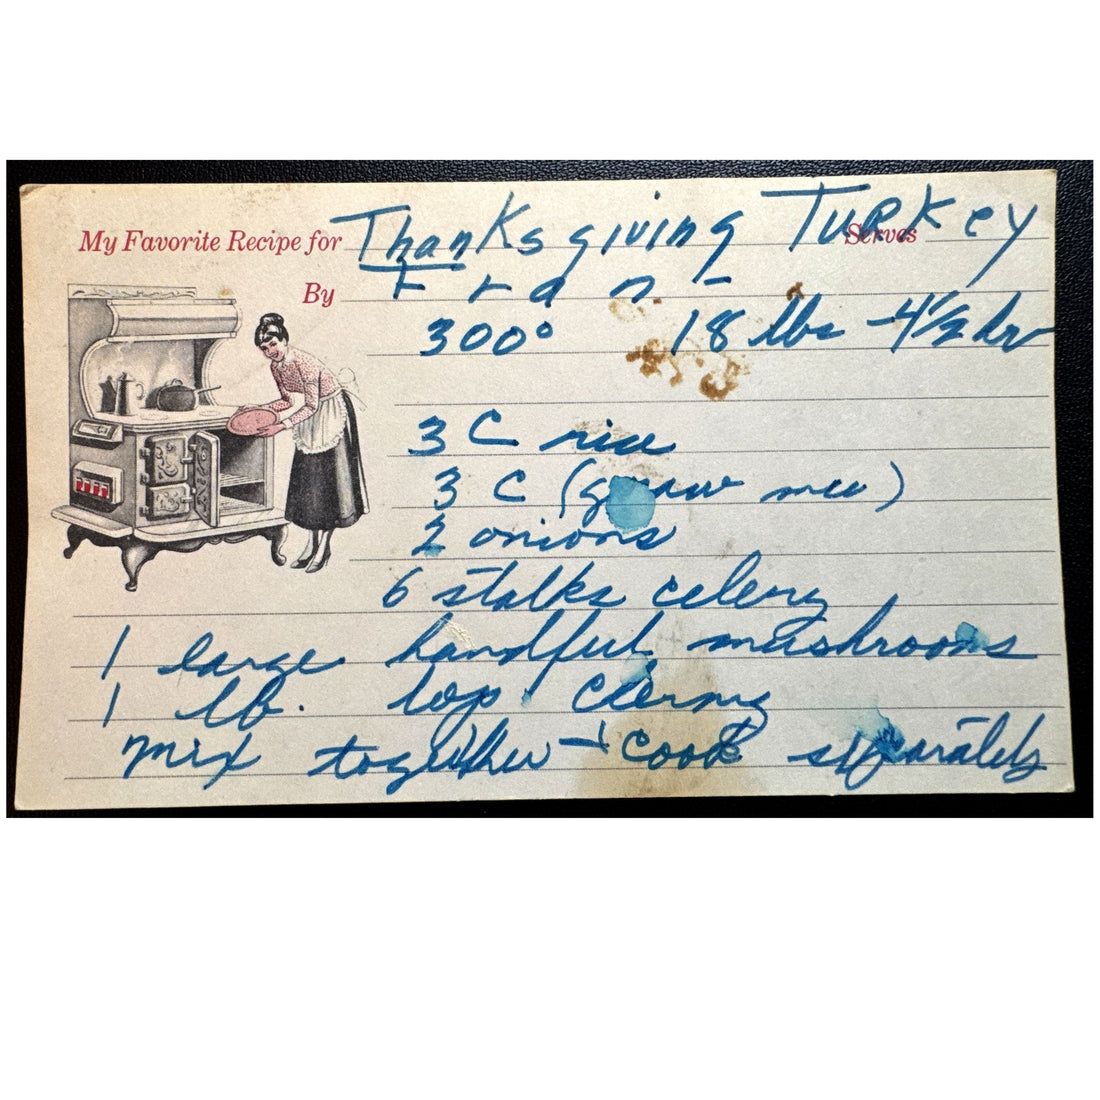 My Favorite Recipe for Thanksgiving Turkey Serves
By Fran
300° 18 lbs - 4 1/2 hr
3 C rice
3 C (
2 onions
6 stalks celery
1 large handful mushrooms
1 lb.
mix together + cook separately